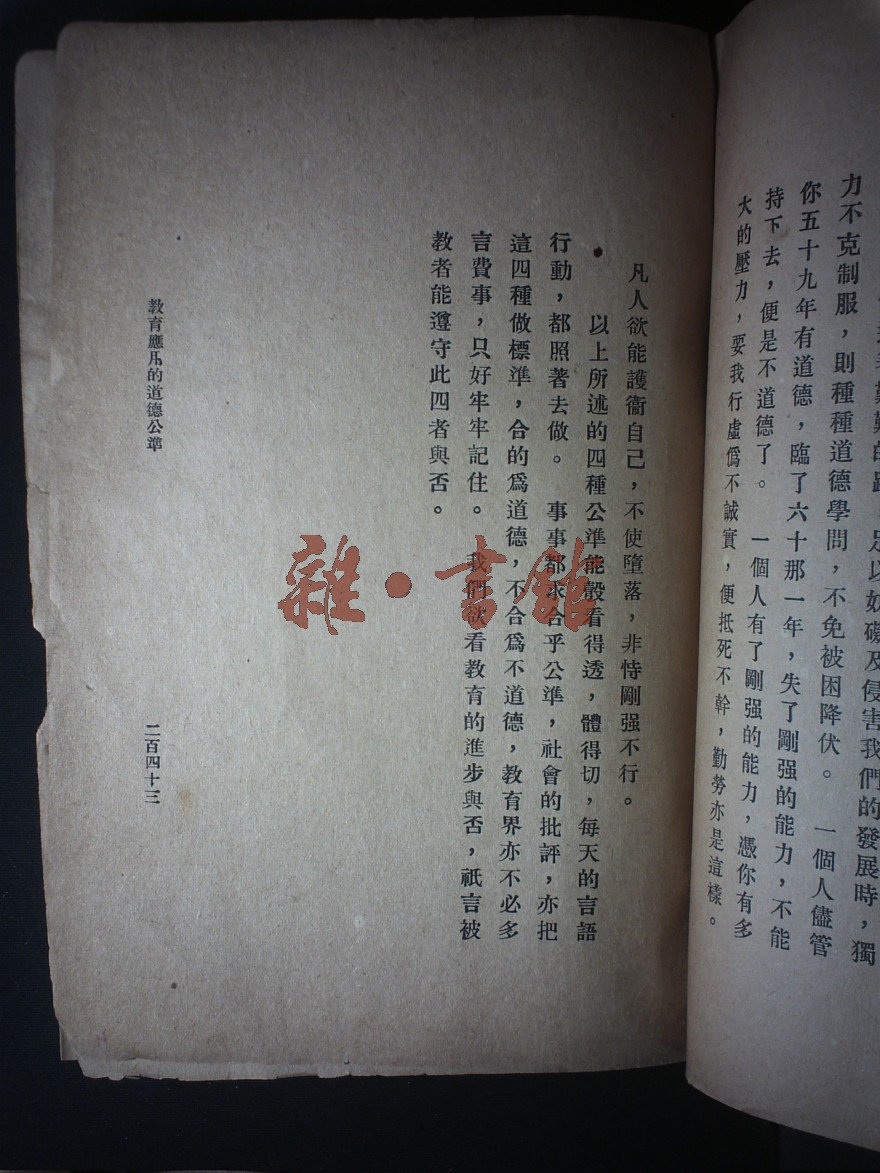 力不克制服，則種種道德學問，不免被困降伏。　一個人儘管
你五十九年有道德，臨了六十那一年，失了剛强的能力，不能
持下去，便是不道德了。　一個人有了剛强的能力，憑你有多
大的壓力，要我行虛僞不誠實，便抵死不幹，勤勞亦是這樣。
凡人欲能護衞自己，不使墮落，非恃剛强不行。
以上所述的四種公準能彀看得透，體得切，每天的言語
行動，都照著去做。　事事都求合乎公準，社會的批評，亦把
這四種做標準，合的爲道德，不合爲不道德，教育界亦不必多
言費事，只好牢牢記住。　我們欲看教育的進步與否，祇言被
教者能遵守此四者與否。
教育應凡的道德公準
二百四十三
雜·書館